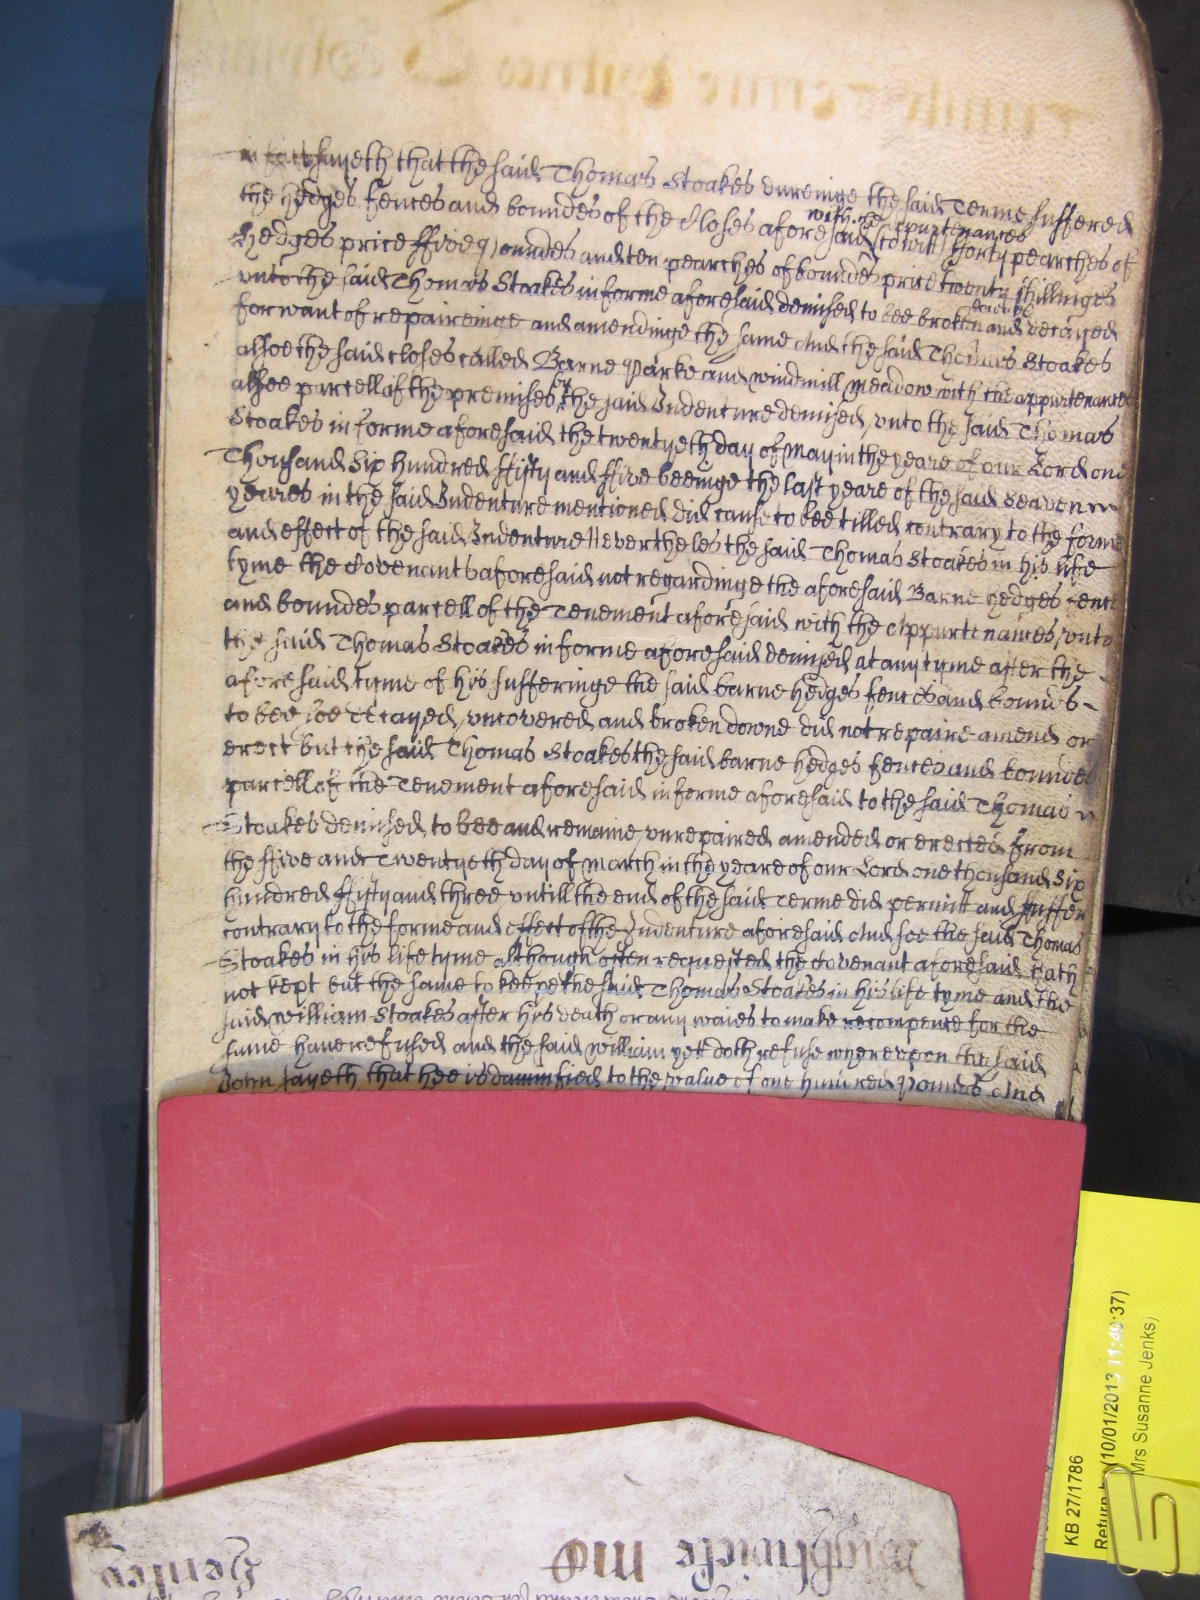 in fact sayeth that the said Thomas Stoakes dureinge the said Terme suffered
the hedges fences and boundes of the Closes aforesaid with the appurtenances (to witt) fforty pearches of
hedges price ffive poundes and ten pearches of boundes price twenty shillinges
unto the said Thomas Stoakes in forme aforesaid demised to bee broken and decayed
for want of repaireinge and amendinge the same And the said Thomas Stoakes
alsoe the said closes called Barne Parke and windmill meadow with the appurtenances
alsoe parcell of the premises by the said Indenture demised unto the said Thomas
Stoakes in forme aforesaid the twentyeth day of May in the yeare of our Lord one
Thousand Six hundred ffifty and ffive beeinge the last yeare of the said seaven
yeares in the said Indenture mentioned did cause to bee tilled contrary to the forme
and effect of the said Indenture Neverthelesse the said Thomas Stoakes in his life
tyme the Covenants aforesaid not regardinge the aforesaid Barne hedges fences
and boundes parcell of the Tenement aforesaid with the Appurtenances unto
the said Thomas Stoakes in forme aforesaid demised at any tyme after the
aforesaid tyme of his sufferinge the said barne hedges fences and boundes
to bee soe decayed uncovered and broken downe did not repaire amend or
erect but the said Thomas Stoakes the said barne hedges fences and boundes
parcell of the Tenement aforesaid in forme aforesaid to the said Thomas
Stoakes demised to bee and remaine unrepaired amended or erected from
the ffive and Twentyeth day of March in the yeare of our Lord one thousand Six
hundred ffifty and three untill the end of the said Terme did permitt and suffer
contrary to the forme and effect of the Indenture aforesaid And soe the said Thomas
Stoakes in his life tyme although often requested the Covenant aforesaid hath
not kept but the same to keepe the said Thomas Stoakes in his life tyme and the
said william Stoakes after his death or any waies to make recompence for the
same have refused and the said william yet doth refuse whereupon the said
John sayeth that hee is damnified to the value of one hundred Pounds And
KB 27/1786
Return by (10/01/2013 11:40:37)
Mrs Susanne Jenks)